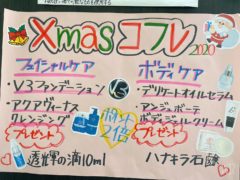 Xmasコフレ
2020
フェイシャルケア
・V3ファンデーション
・アクアヴィーナス
クレンジング
プレゼント
透輝の滴10ml
ポイント
2倍
ボディケア
・デリケートオイルセラム
・アンジュボーテ
ボディジェルクリーム
プレゼント
ハナキラ石鹸